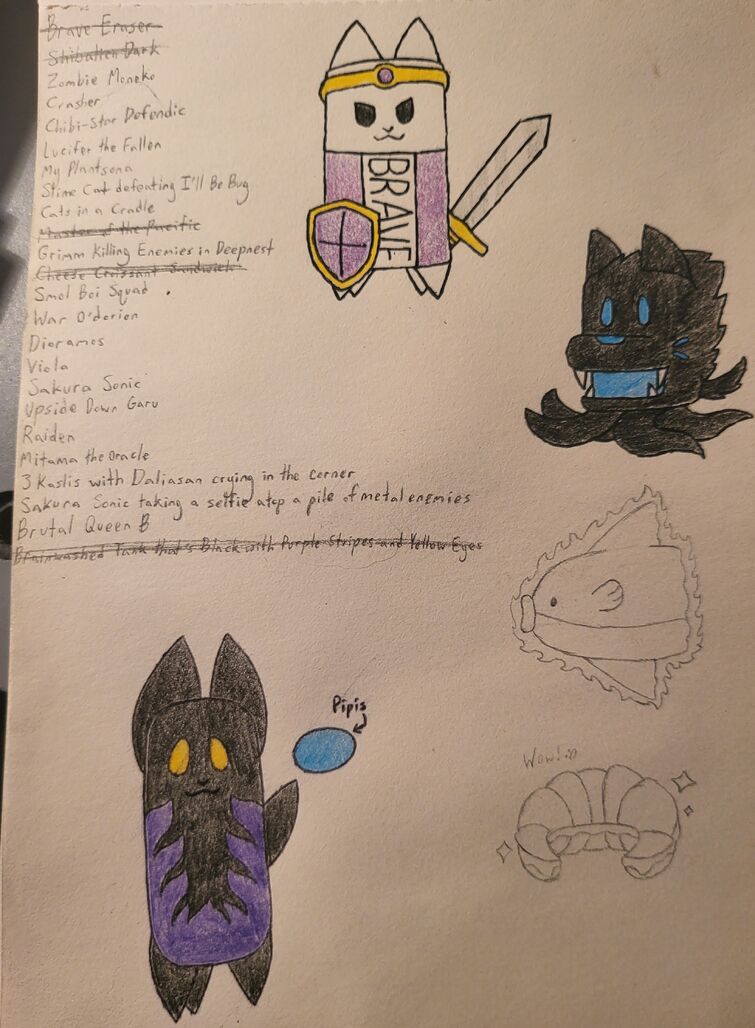 Brave Eraser
Shibalien Dark
Zombie Moneko
Crasher
Chibi-Star Defendic
Lucifer the Fallen
My Plantsona
Slime Cat defeating I'll Be Bug
Cats in a Cradle
Master of the Pacific
Grimm Killing Enemies in Deepnest
Cheese Croissant Sandwich
Smol Boi Squad
War O'dorion
Dioramos
Viola
Sakura Sonic
Upside Down Garu
Raiden
Mitama the Oracle
3 Kaslis with Daliasan crying in the corner
Sakura Sonic taking a selfie atop a pile of metal enemies
Brutal Queen B
Brainwashed Tank that's Black with Purple Stripes and Yellow Eyes
BRAVE
Pipis